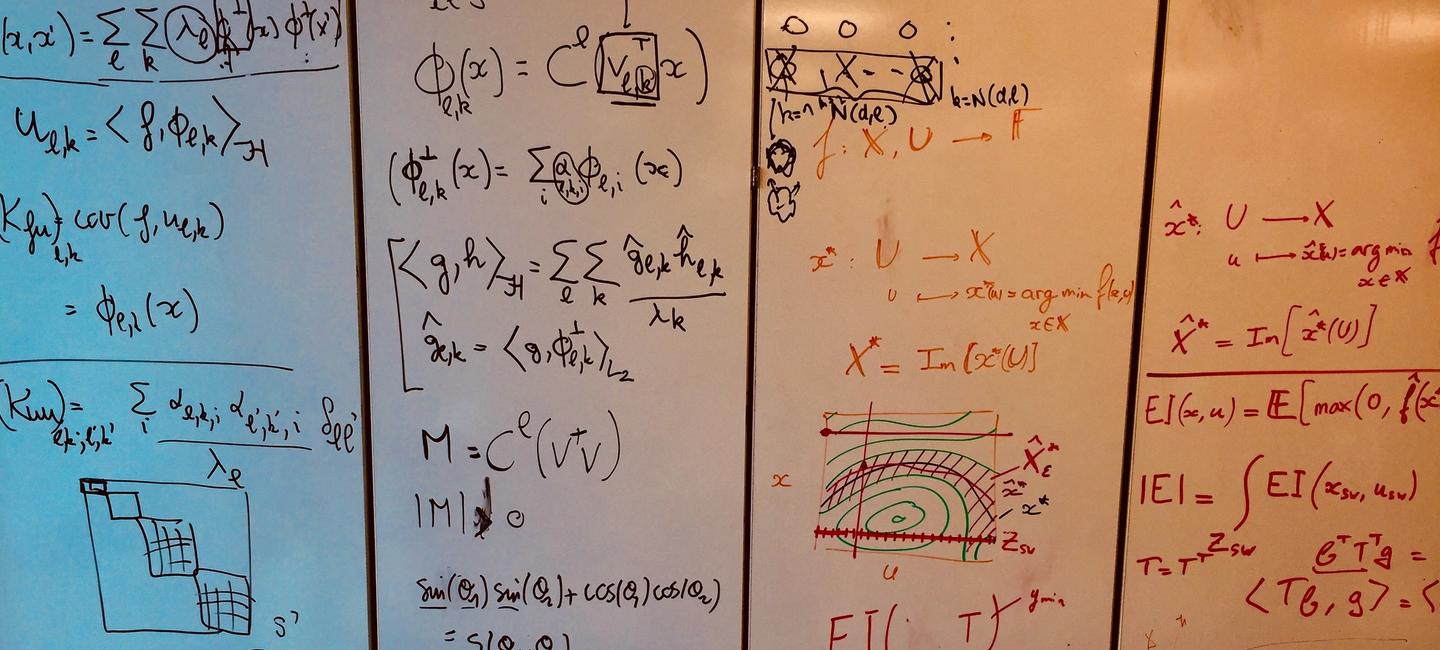 (x,x') = ∑_ℓ ∑_k λ_ℓ ϕ^⊥(x) ϕ^⊥(x')
u_{ℓ,k} = ⟨f, ϕ_{ℓ,k}⟩_H
(K_{fu})_{ℓ,k} = cov(f, u_{ℓ,k})
= ϕ_{ℓ,k}(x)
(K_{uu})_{ℓ,k;ℓ',k'} = ∑_i α_{ℓ,k,i} α_{ℓ',k',i} δ_{ℓℓ'}
λ_ℓ
ϕ_{ℓ,k}(x) = C^ℓ(v_{ℓ,k}^T x)
(ϕ^⊥_{ℓ,k}(x) = ∑_i α_{ℓ,k,i} ϕ_{ℓ,i}(x)
⟨g,h⟩_H = ∑_ℓ ∑_k ĝ_{ℓ,k} ĥ_{ℓ,k} / λ_k
ĝ_{ℓ,k} = ⟨g, ϕ^⊥_{ℓ,k}⟩_{L2}
M = C^ℓ(V^T V)
|M| 0
sin(θ1) sin(θ2) + cos(θ1) cos(θ2)
k = N(d,ℓ)
N(d,ℓ)
f : X, U → F
x* : U → X
u ↦ x*(u) = arg min f(x,u)
x∈X
X* = Im[x*(U)]
X̂*_ε
x̂*
x*
x
Z_{sw}
u
EI( T)
y min
x̂* : U → X
u ↦ x̂*(u) = arg min
x∈X
X̂* = Im[x̂*(U)]
EI(x,u) = E[max(0, f̂(x*
|EI| = ∫ EI(x_{sw}, u_{sw})
Z_{sw}
T = T^T
b^T T^T g =
⟨Tb, g⟩ = ⟨